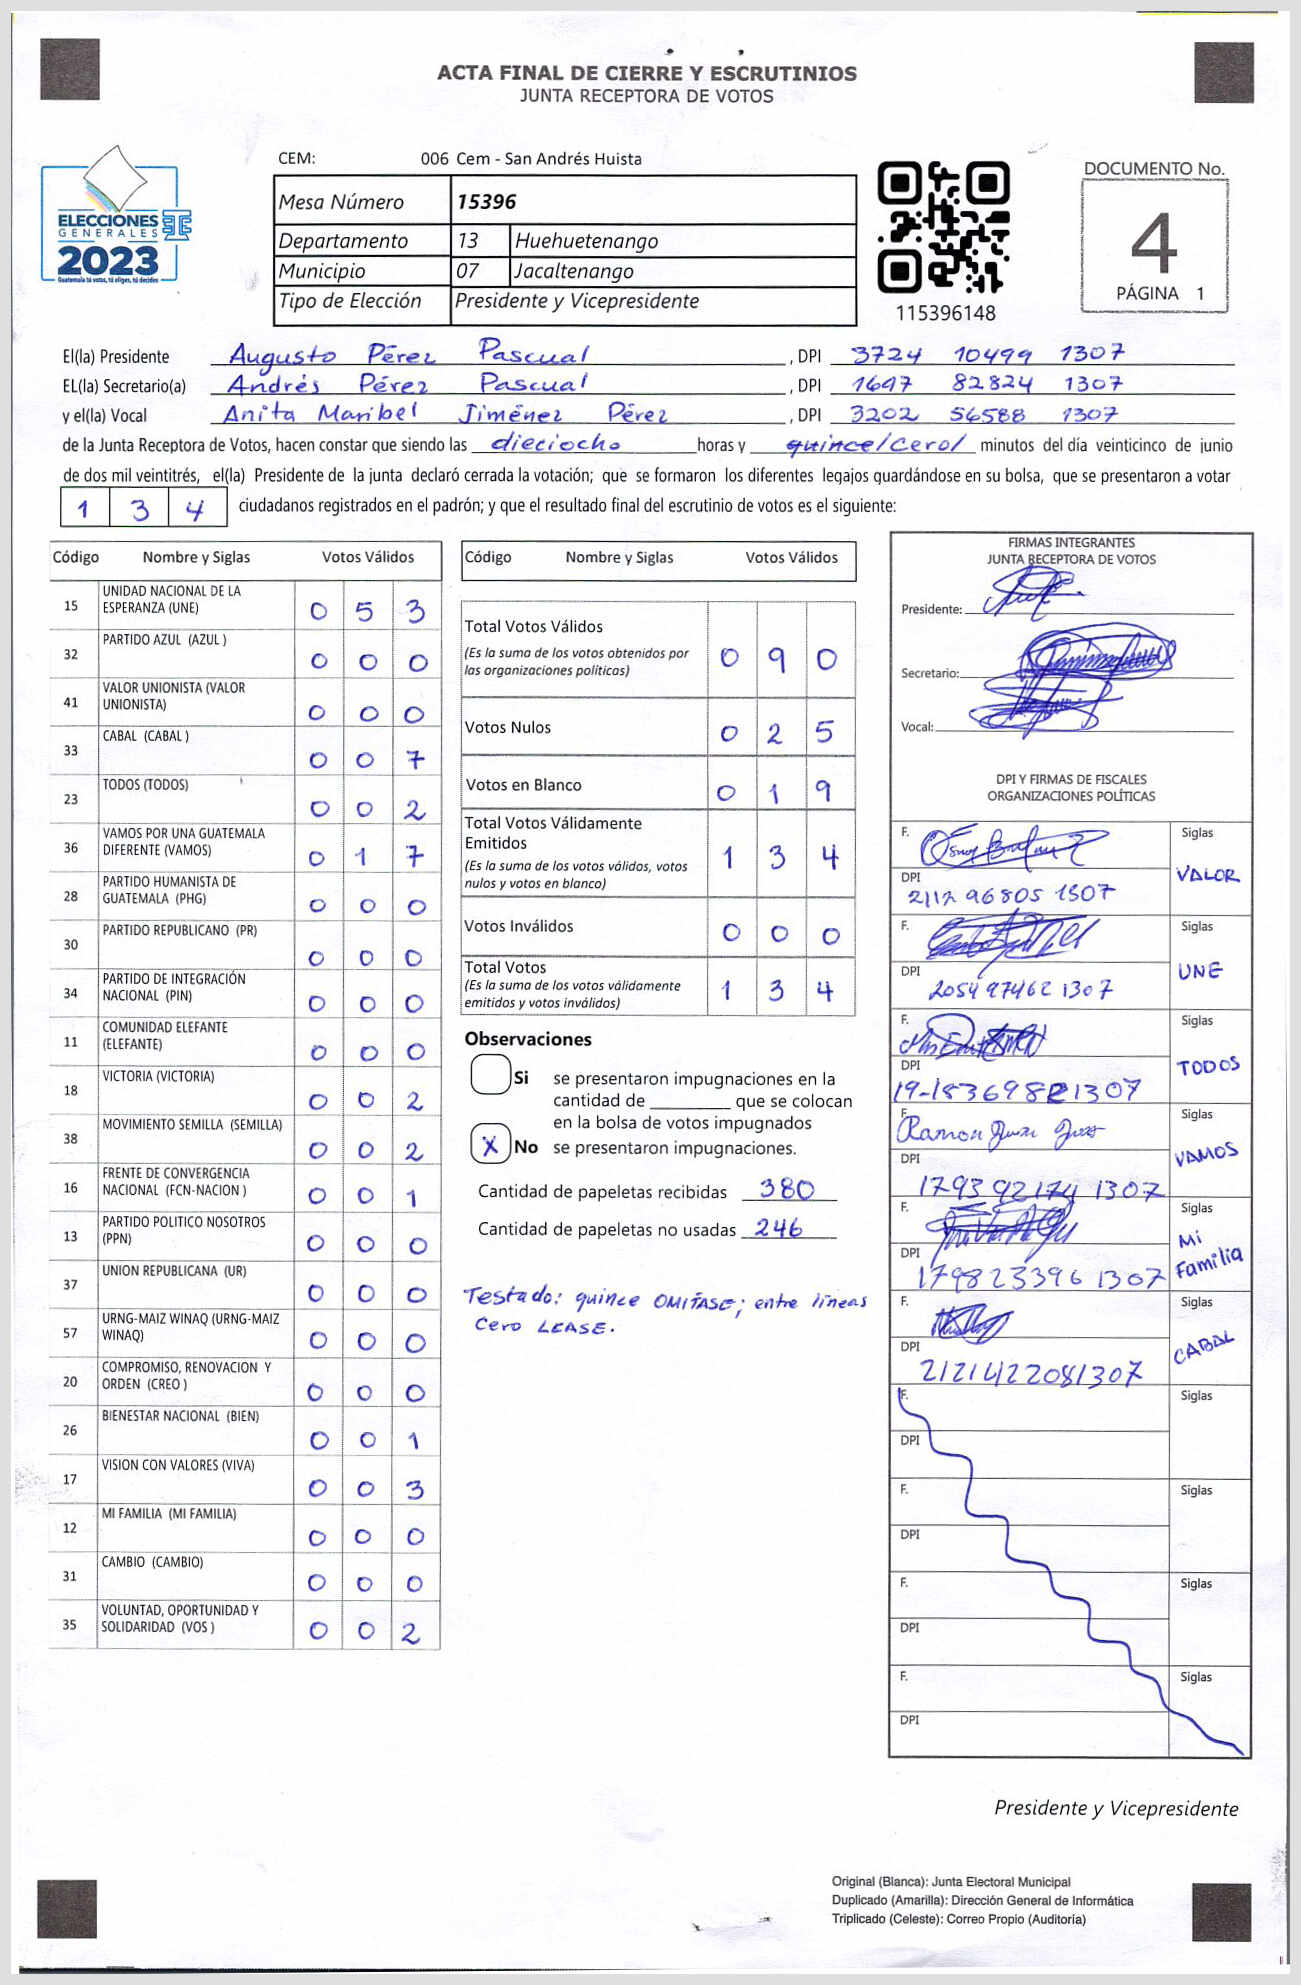 ACTA FINAL DE CIERRE Y ESCRUTINIOS
JUNTA RECEPTORA DE VOTOS
ELECCIONES
GENERALES
2023
Guatemala tú votas, tú eliges, tú decides
CEM: 006 Cem - San Andrés Huista
Mesa Número 15396
Departamento 13 Huehuetenango
Municipio 07 Jacaltenango
Tipo de Elección Presidente y Vicepresidente
115396148
DOCUMENTO No.
4
PÁGINA 1
El(la) Presidente Augusto Pérez Pascual, DPI 3724 10499 1307
EL(la) Secretario(a) Andrés Pérez Pascual, DPI 1697 82824 1307
y el(la) Vocal Anita Maribel Jiménez Pérez, DPI 3202 56588 1307
de la Junta Receptora de Votos, hacen constar que siendo las dieciocho horas y quince/cero/ minutos del día veinticinco de junio
de dos mil veintitrés, el(la) Presidente de la junta declaró cerrada la votación; que se formaron los diferentes legajos guardándose en su bolsa, que se presentaron a votar
1 3 4 ciudadanos registrados en el padrón; y que el resultado final del escrutinio de votos es el siguiente:
Código Nombre y Siglas Votos Válidos
15 UNIDAD NACIONAL DE LA
ESPERANZA (UNE) 0 5 3
32 PARTIDO AZUL (AZUL ) 0 0 0
41 VALOR UNIONISTA (VALOR
UNIONISTA) 0 0 0
33 CABAL (CABAL ) 0 0 7
23 TODOS (TODOS) 0 0 2
36 VAMOS POR UNA GUATEMALA
DIFERENTE (VAMOS) 0 1 7
28 PARTIDO HUMANISTA DE
GUATEMALA (PHG) 0 0 0
30 PARTIDO REPUBLICANO (PR) 0 0 0
34 PARTIDO DE INTEGRACIÓN
NACIONAL (PIN) 0 0 0
11 COMUNIDAD ELEFANTE
(ELEFANTE) 0 0 0
18 VICTORIA (VICTORIA) 0 0 2
38 MOVIMIENTO SEMILLA (SEMILLA) 0 0 2
16 FRENTE DE CONVERGENCIA
NACIONAL (FCN-NACION ) 0 0 1
13 PARTIDO POLITICO NOSOTROS
(PPN) 0 0 0
37 UNION REPUBLICANA (UR) 0 0 0
57 URNG-MAIZ WINAQ (URNG-MAIZ
WINAQ) 0 0 0
20 COMPROMISO, RENOVACION Y
ORDEN (CREO ) 0 0 0
26 BIENESTAR NACIONAL (BIEN) 0 0 1
17 VISION CON VALORES (VIVA) 0 0 3
12 MI FAMILIA (MI FAMILIA) 0 0 0
31 CAMBIO (CAMBIO) 0 0 0
35 VOLUNTAD, OPORTUNIDAD Y
SOLIDARIDAD (VOS ) 0 0 2
Código Nombre y Siglas Votos Válidos
Total Votos Válidos
(Es la suma de los votos obtenidos por
las organizaciones políticas) 0 9 0
Votos Nulos 0 2 5
Votos en Blanco 0 1 9
Total Votos Válidamente
Emitidos 1 3 4
(Es la suma de los votos válidos, votos
nulos y votos en blanco)
Votos Inválidos 0 0 0
Total Votos
(Es la suma de los votos válidamente
emitidos y votos inválidos) 1 3 4
Observaciones
Si se presentaron impugnaciones en la
cantidad de ________ que se colocan
en la bolsa de votos impugnados
X No se presentaron impugnaciones.
Cantidad de papeletas recibidas 380
Cantidad de papeletas no usadas 246
Testado: quince OMITASE; entre líneas
Cero LEASE.
FIRMAS INTEGRANTES
JUNTA RECEPTORA DE VOTOS
Presidente:
Secretario:
Vocal:
DPI Y FIRMAS DE FISCALES
ORGANIZACIONES POLÍTICAS
F. Siglas
VALOR
DPI
2112 96805 1307
F. Siglas
UNE
DPI
2054 97462 1307
F. Siglas
TODOS
DPI
F. Ramon Siglas
VAMOS
DPI
1793 92174 1307
F. Siglas
Mi
Familia
DPI
179823396 1307
F. Siglas
CABAL
DPI
2121422081307
F. Siglas
DPI
F. Siglas
DPI
F. Siglas
DPI
F. Siglas
DPI
Presidente y Vicepresidente
Original (Blanca): Junta Electoral Municipal
Duplicado (Amarilla): Dirección General de Informática
Triplicado (Celeste): Correo Propio (Auditoría)